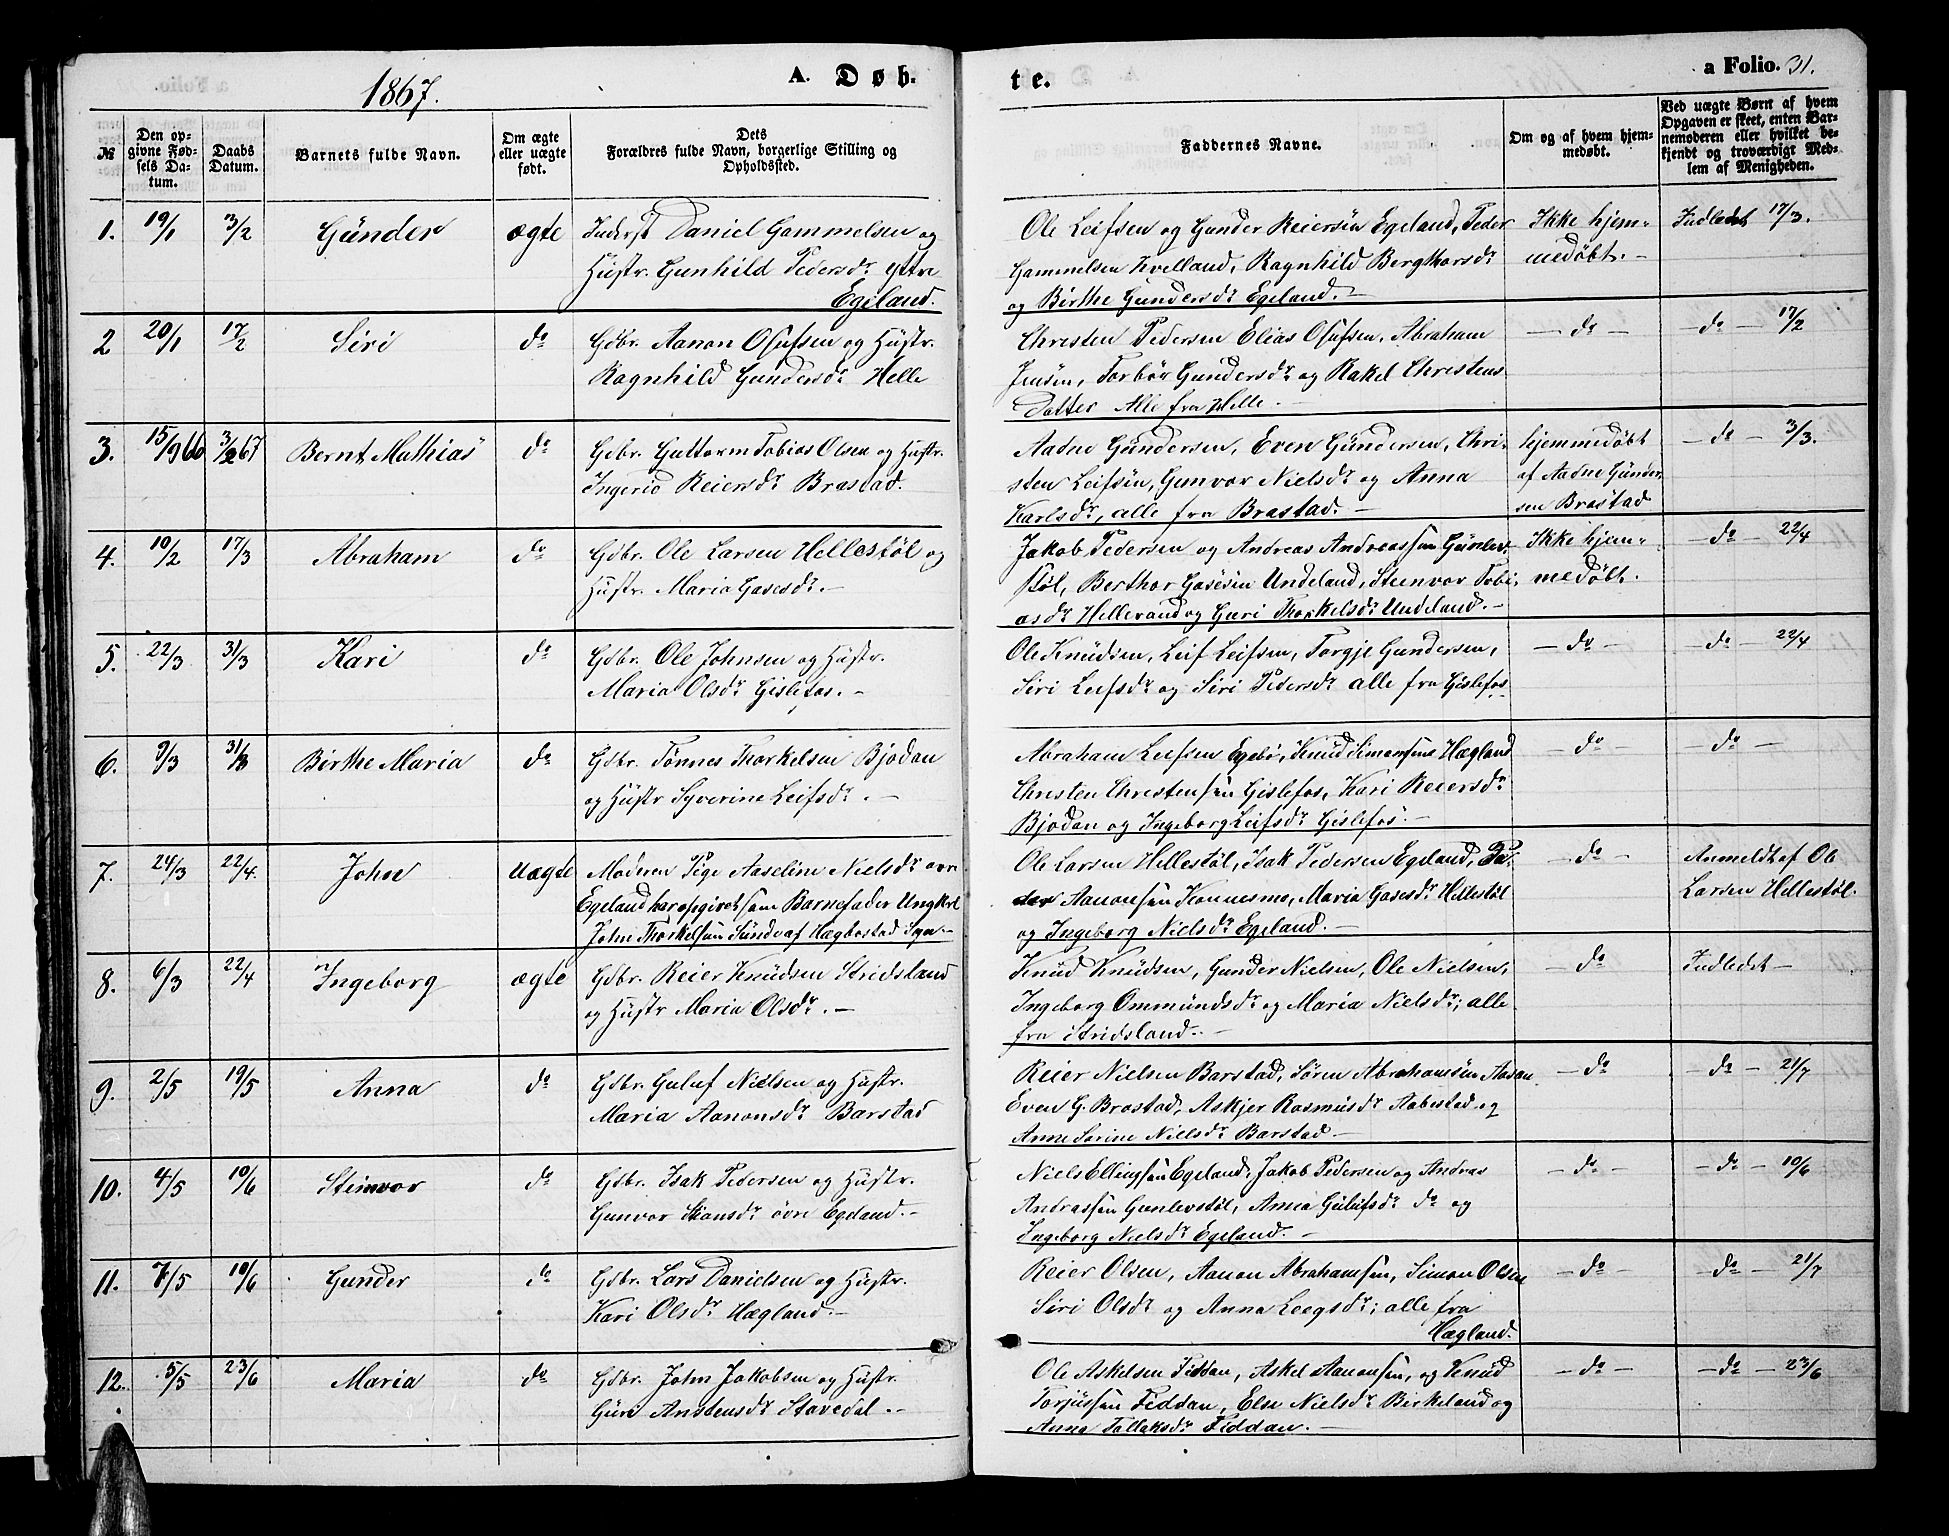 1867.
A. Døb.
te.
a Folio. 31.
№
Den op-
givne Fød-
sels Da-
tum.
Daabs
Datum.
Barnets fulde Navn.
Om ægte
eller uægte
født.
Dets
Forældres fulde Navn, borgerlige Stilling og
Opholdssted.
Faddernes Navne.
Om og af hvem hjem-
medøbt.
Ved uægte Børn af hvem
Opgaven er skeet, enten Bar-
nemoderen eller hvilket be-
kjendt og troværdigt Med-
lem af Menigheden.
1. 19/1 3/2 Gunder ægte Inderst Daniel Gammelsen og
Hustr. Gunhild Pedersdr. Yttre
Egeland.
Ole Leifsen og Gunder Reiersen Egeland, Peder
Gammelsen Kvelland, Ragnhild Bergthorsdr
og Birthe Gundersdr Egeland. –
Ikke hjem-
medøbt. –
Indledet 17/3.
2 20/1 17/2 Siri do Gdbr. Aanon Osufsen og Hustr.
Ragnhild Gundersdr Helle
Christen Pedersen Elias Osufsen, Abraham
Jensen, Torbør Gundersdr og Rakel Christens
Datter Alle fra Helle. –
– do –
– do – 17/2
3. 15/9 66 3/2 67 Bernt Mathias do Gdbr. Guttorm Tobias Olsen og Hustr.
Ingerid Reiersdr Brastad.
Aadne Gundersen, Even Gundersen, Chri-
sten Leifsen, Gunvor Nielsdr og Anna
Karlsdr, alle fra Brastad. –
hjemmedøbt
af Aadne Gunder-
sen Brastad
– do – 3/3.
4. 10/2 17/3 Abraham do Gdbr. Ole Larsen Hellestøl og
Hustr. Maria Gasesdr. –
Jakob Pedersen og Andreas Andreassen Gunlev-
støl, Berthor Gasesen Undeland, Steenvor Tobi-
asdr Hellerand og Guri Thorkelsdr Undeland. –
Ikke hjem-
medøbt.
– do – 22/4
5. 22/3 31/3 Kari do Gdbr. Ole Johnsen og Hustr.
Maria Olsdr Gislefos. –
Ole Knudsen, Leif Leifsen, Torgje Gundersen,
Siri Leifsdr og Siri Pedersdr alle fra Gislefos
– do –
– do – 22/4
6. 9/3 31/3 Birthe Maria do Gdbr. Tønnes Thorkelsen Bjodan
og Hustr Syverine Leifsdr. –
Abraham Leifsen Egebø, Knud Simonsen Hægland
Christen Christensen Gislefos, Kari Reiersdr
Bjodan og Ingeborg Leifsdr Gislefos. –
– do –
– do –
7. 24/3 22/4. John Uægte Moderen Pige Aaseline Nielsdr øvre
Egeland har opgivet som Barnefader Ungkrl
John Thorkelsen Sunde af Hægbostad Sogn –
Ole Larsen Hellestøl, Isak Pedersen Egeland, Pe-
der Aanonsen Konnesmo, Maria Gasesdr Hellestøl
og Ingeborg Nielsdr Egeland. –
– do –
Anmeldt af Ole
Larsen Hellestøl.
8. 6/3 22/4 Ingeborg ægte Gdbr. Reier Knudsen Stridsland
og Hustr Maria Olsdr. –
Knud Knudsen, Gunder Nielsen, Ole Nielsen,
Ingeborg Ommundsdr og Maria Nielsdr; alle
fra Stridsland. –
– do
Indledet –
9. 2/5 19/5 Anna do Gdbr. Guluf Nielsen og Hustr.
Maria Aanonsdr Barstad
Reier Nielsen Barstad, Søren Abrahamsen Aasen
Even G. Brastad, Askjer Rasmusdr Aabestad og
Anne Sorine Nielsdr Barstad. –
– do –
– do – 21/7
10. 4/5 10/6 Steinvor do Gdbr. Isak Pedersen og Hustr.
Gunvor dr øvre Egeland. –
Niels Ellingsen Egeland, Jakob Pedersen og Andras
Andrassen Gunlevstøl, Anna Gulufsdr do og
Ingeborg Nielsdr Egeland. –
– do –
– do – 10/6
11. 7/5 10/6 Gunder do Gdbr. Lars Danielsen og Hustr.
Kari Olsdr Hægland. –
Reier Olsen, Aanon Abrahamsen, Simon Olsen
Siri Olsdr og Anna dr; alle fra
Hægland.
– do –
– do – 21/7
12. 5/5 23/6 Maria do Gdbr. John Jakobsen og Hustr.
Guri Anstensdr Stavedal. –
Ole Askelsen Fiddan, Askel Aanonsen, og Knud
Torjussen Fiddan, Else Nielsdr Birkeland og
Anna Tallaksdr Fiddan. –
– do –
– do – 23/6